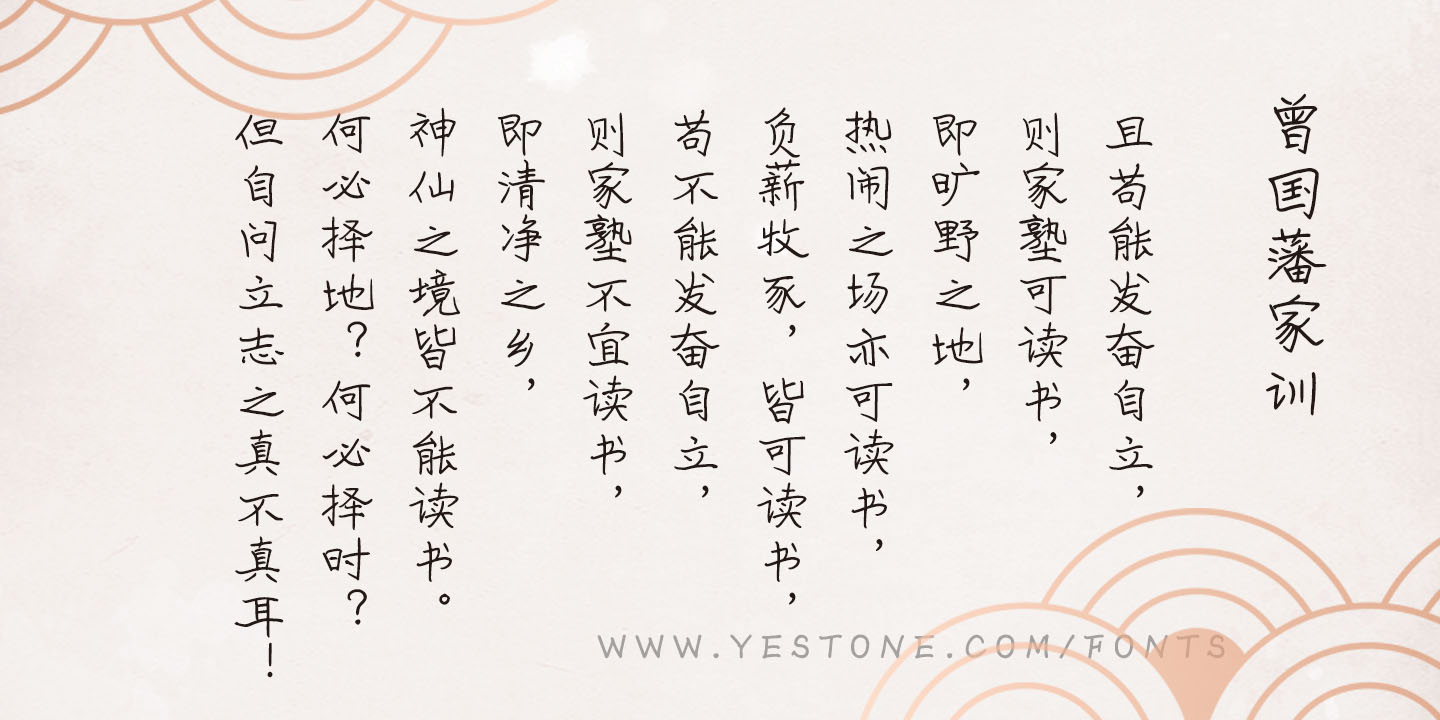 曾国藩家训
且苟能发奋自立，
则家塾可读书，
即旷野之地，
热闹之场亦可读书，
负薪牧豕，皆可读书，
苟不能发奋自立，
则家塾不宜读书，
即清净之乡，
神仙之境皆不能读书。
何必择地？何必择时？
但自问立志之真不真耳！
WWW.YESTONE.COM/FONTS